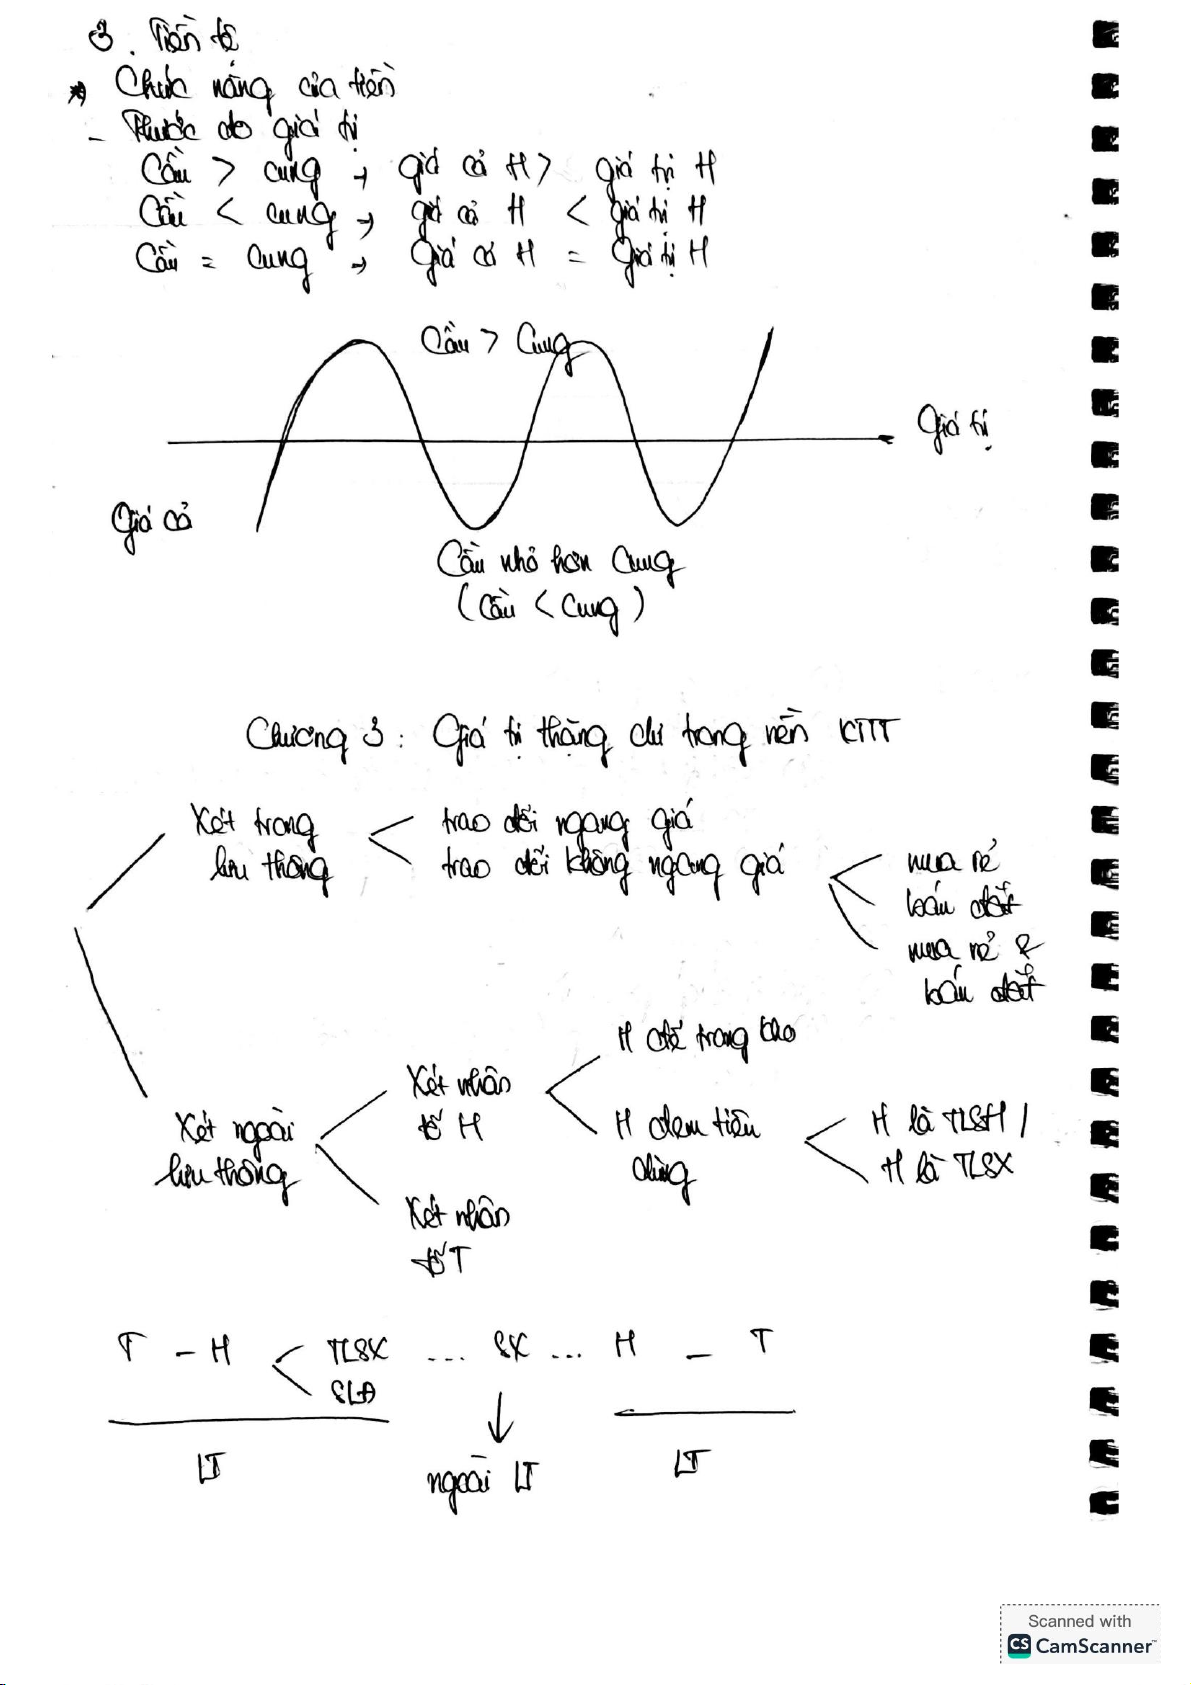 3. Tiền tệ
* Chức năng của tiền
- Thước đo giá trị
Cầu > cung → giá cả H > giá trị H
Cầu < cung → giá cả H < giá trị H
Cầu = cung → Giá cả H = Giá trị H
Cầu > Cung
Giá trị
Giá cả
Cầu nhỏ hơn Cung
(Cầu < Cung)
Chương 3: Giá trị thặng dư trong nền KTTT
Xét trong
lưu thông
trao đổi ngang giá
trao đổi không ngang giá
mua rẻ
bán đắt
mua rẻ &
bán đắt
Xét ngoài
lưu thông
Xét nhân
tố H
H để trong kho
H đem tiêu
dùng
H là TLSH /
H là TLSX
Xét nhân
tố T
T - H TLSX ... SX ... H - T
SLĐ
LT ngoài LT LT
Scanned with
CS CamScanner™